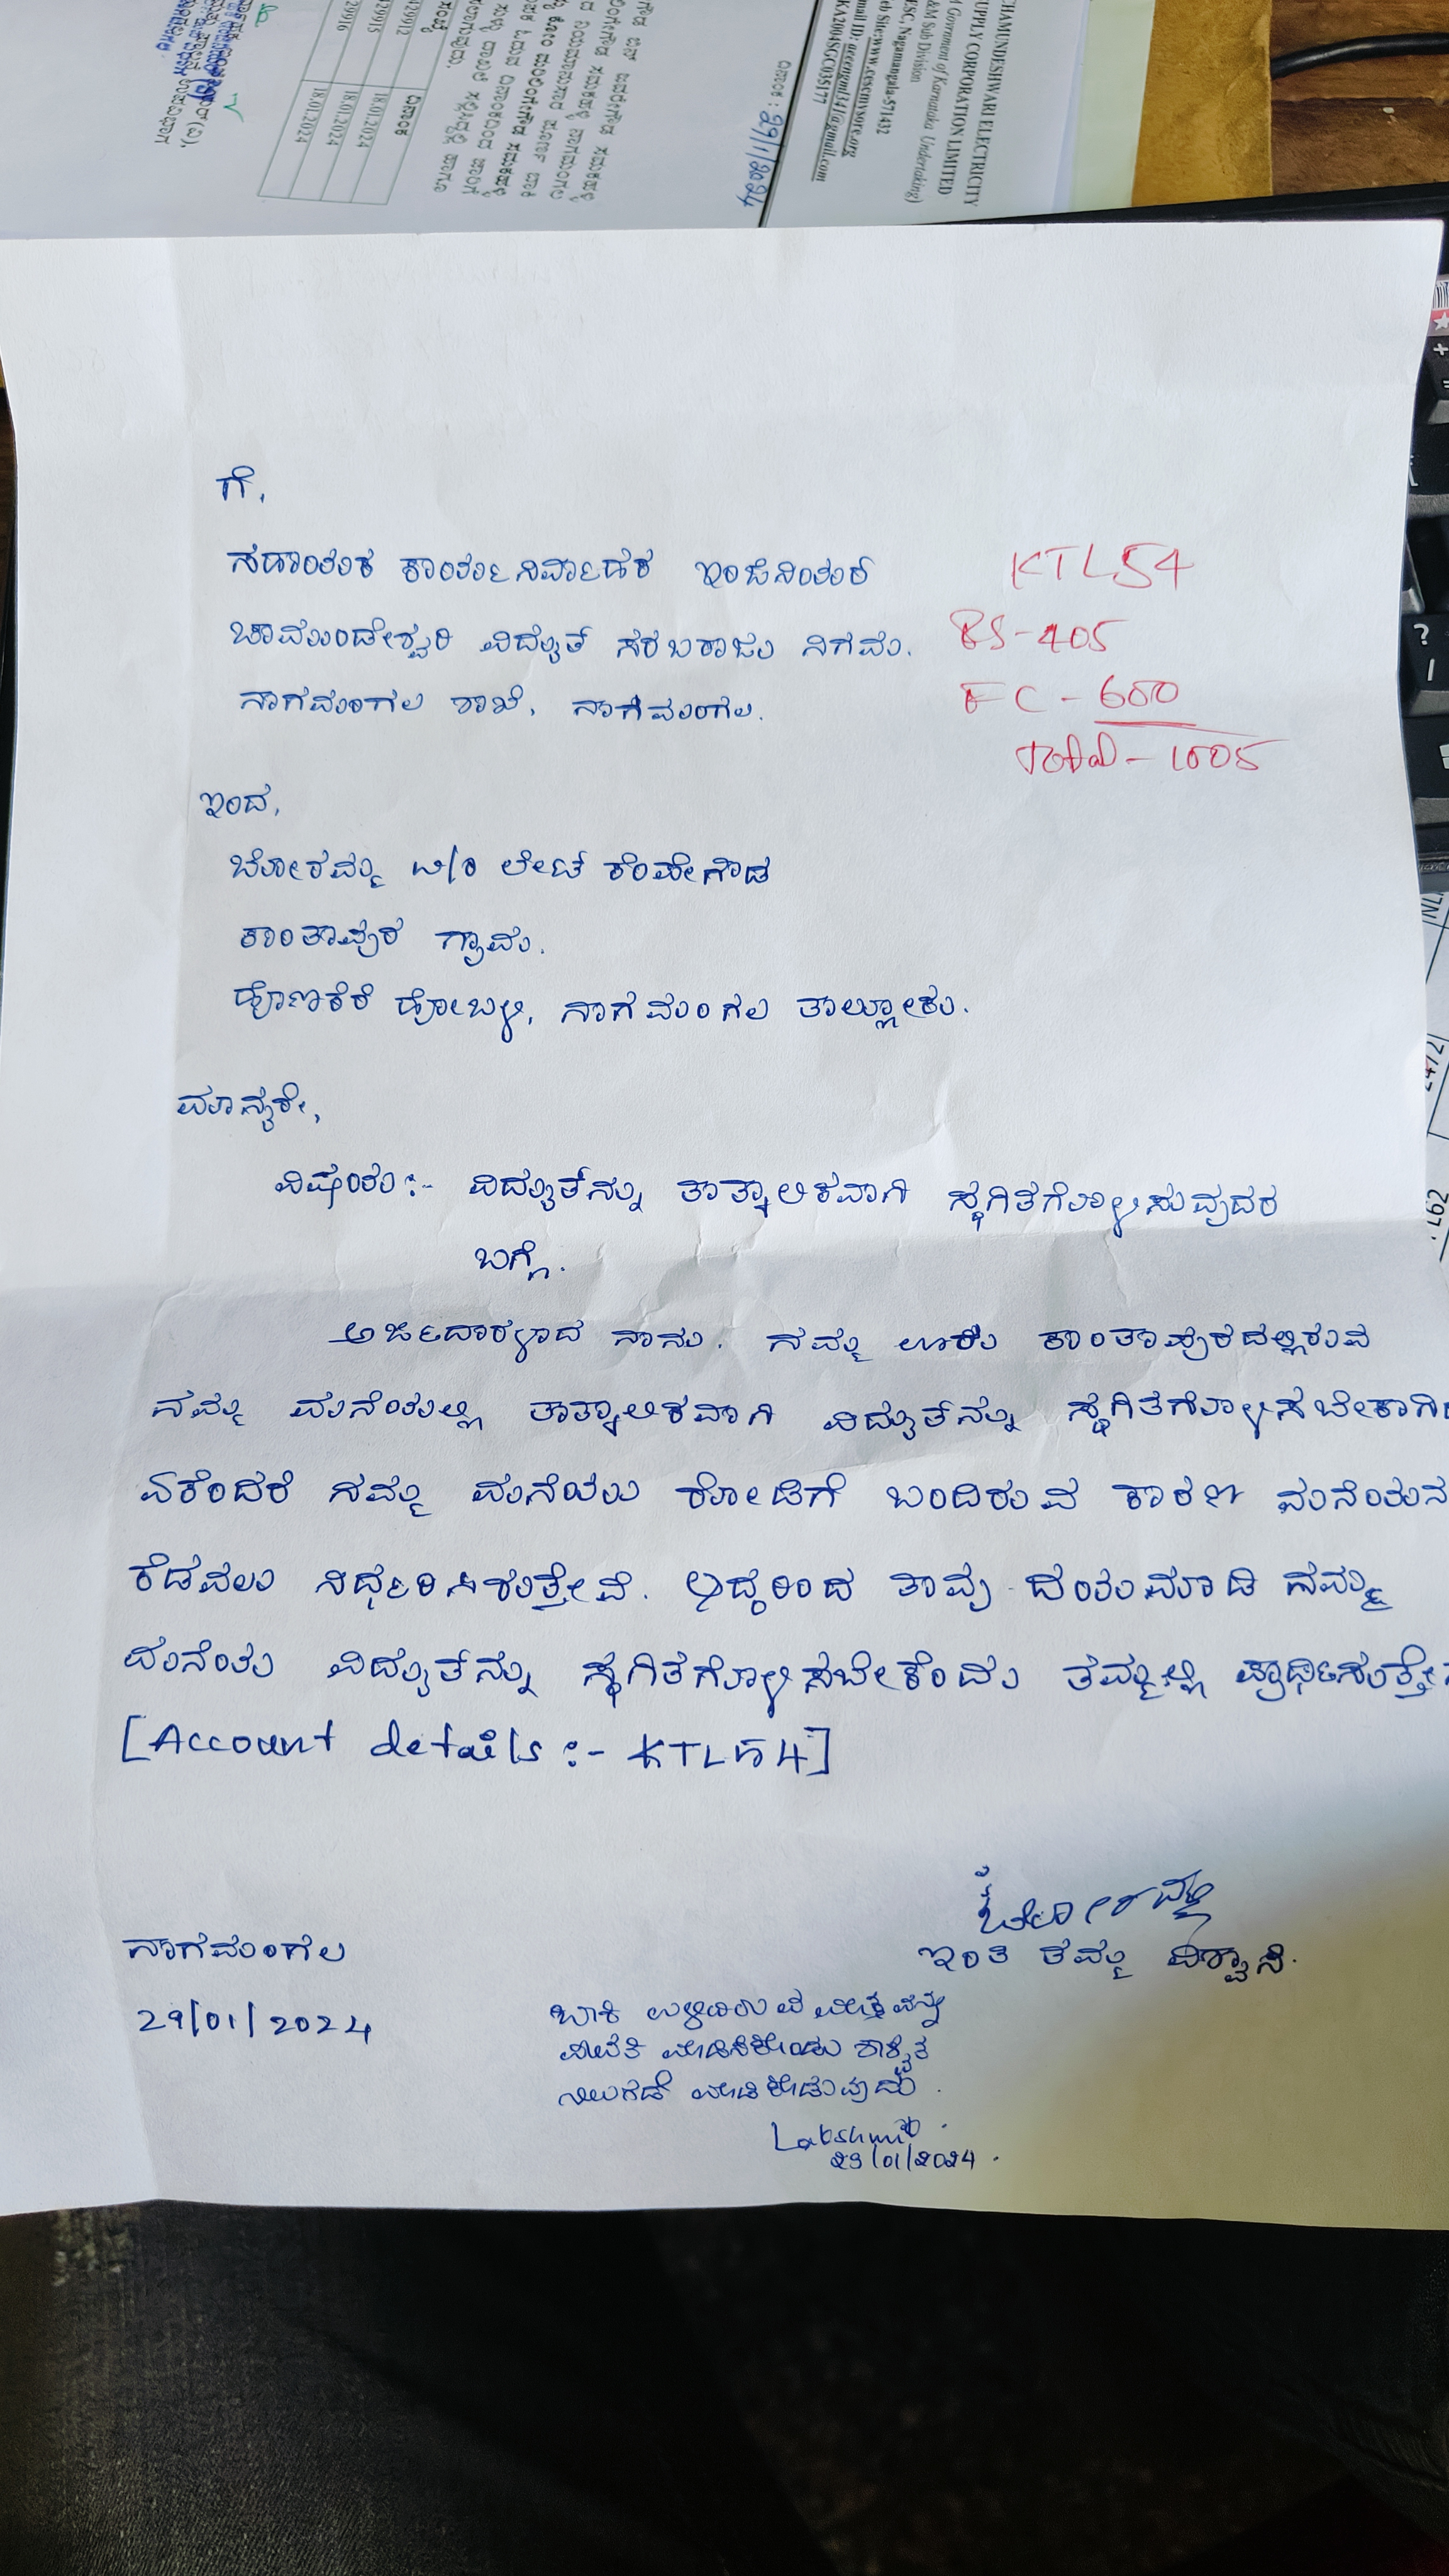 CHAMUNDESHWARI ELECTRICITY
SUPPLY CORPORATION LIMITED
Government of Karnataka Undertaking)
&M Sub Division
ESC, Nagamangala-571432
eb Site:www.cescmysore.org
mail ID: aeeengml341@gmail.com
KA2004SGC035177
ದಿನಾಂಕ : 29/1/2024
ದಿನಾಂಕ
429912 18.01.2024
429915 18.01.2024
29916 18.01.2024
ಗೆ,
ಸಹಾಯಕ ಕಾರ್ಯನಿರ್ವಾಹಕ ಇಂಜಿನಿಯರ್
ಚಾಮುಂಡೇಶ್ವರಿ ವಿದ್ಯುತ್ ಸರಬರಾಜು ನಿಗಮ.
ನಾಗಮಂಗಲ ಶಾಖೆ, ನಾಗಮಂಗಲ.
KTL54
BS-405
FC-600
Total-1005
ಇಂದ,
ಬೋರಮ್ಮ w/o ಲೇಟ್ ಕೆಂಪೇಗೌಡ
ಕಾಂತಾಪುರ ಗ್ರಾಮ.
ಹೊಣಕೆರೆ ಹೋಬಳಿ, ನಾಗಮಂಗಲ ತಾಲ್ಲೂಕು.
ಮಾನ್ಯರೇ,
ವಿಷಯ:- ವಿದ್ಯುತ್‌ನ್ನು ತಾತ್ಕಾಲಿಕವಾಗಿ ಸ್ಥಗಿತಗೊಳಿಸುವುದರ
ಬಗ್ಗೆ.
ಅರ್ಜಿದಾರಳಾದ ನಾನು. ನಮ್ಮ ಊರು ಕಾಂತಾಪುರದಲ್ಲಿರುವ
ನಮ್ಮ ಮನೆಯಲ್ಲಿ ತಾತ್ಕಾಲಿಕವಾಗಿ ವಿದ್ಯುತ್‌ನ್ನು ಸ್ಥಗಿತಗೊಳಿಸಬೇಕಾಗಿ
ಏಕೆಂದರೆ ನಮ್ಮ ಮನೆಯು ರೋಡಿಗೆ ಬಂದಿರುವ ಕಾರಣ ಮನೆಯನ
ಕೆಡವಲು ನಿರ್ಧರಿಸಿರುತ್ತೇವೆ. ಆದ್ದರಿಂದ ತಾವು ದಯಮಾಡಿ ನಮ್ಮ
ಮನೆಯ ವಿದ್ಯುತ್‌ನ್ನು ಸ್ಥಗಿತಗೊಳಿಸಬೇಕೆಂದು ತಮ್ಮಲ್ಲಿ ಪ್ರಾರ್ಥಿಸುತ್ತೇ
[Account details :- KTL54]
ಬೋರಮ್ಮ
ಇಂತಿ ತಮ್ಮ ವಿಶ್ವಾಸಿ.
ನಾಗಮಂಗಲ
29/01/2024
ಬಾಕಿ ಉಳಿದಿರುವ ಮೊತ್ತವನ್ನು
ಪಾವತಿ ಮಾಡಿಸಿಕೊಂಡು ಶಾಶ್ವತ
ನಿಲುಗಡೆ ಮಾಡಿಕೊಡುವುದು.
Lakshmi
29/01/2024.